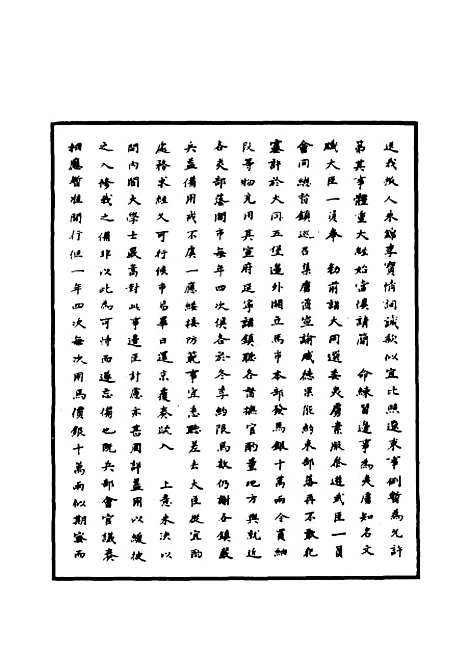 送我縱人來歸李寶情詞誠款似宜比照遼東事例暫為允許
第其事體重大經始當慎請簡　命練習邊事為夷虜知名文
職大臣一員奉　勑前詣大同選委夷虜素服參遊武臣一員
會同總督鎮巡召集虜酋宣諭威德果能約束部落再不敢犯
塞許於大同五堡邊外開立馬市本部發馬銀十萬兩令買納
段等物充用其宣府延寧諸鎮聽各督撫官酌量地方與就近
各夷部落開市每年四次俟各於冬季約限馬數仍謝各鎮嚴
兵益備用戒不虞一應綏接防範事宜悉聽差去大臣從宜酌
處務求經久可行俟市易畢日還京覆奏疏入　上意未決以
問內閣大學士嚴嵩對此事邊臣計慮亦甚周詳蓋用以緩彼
之入修我之備非以此為可恃而遂忘備也既兵部會官議奏
相應暫准開行但一年四次每次用馬價銀十萬兩似期密而